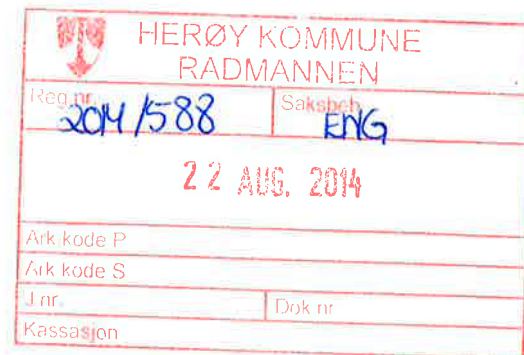 HERØY KOMMUNE
RADMANNEN
Reg.nr. Saksbeh
2014/588 ENG
22 AUG. 2014
Ark kode P
Ark kode S
J nr. Dok nr
Kassasjon